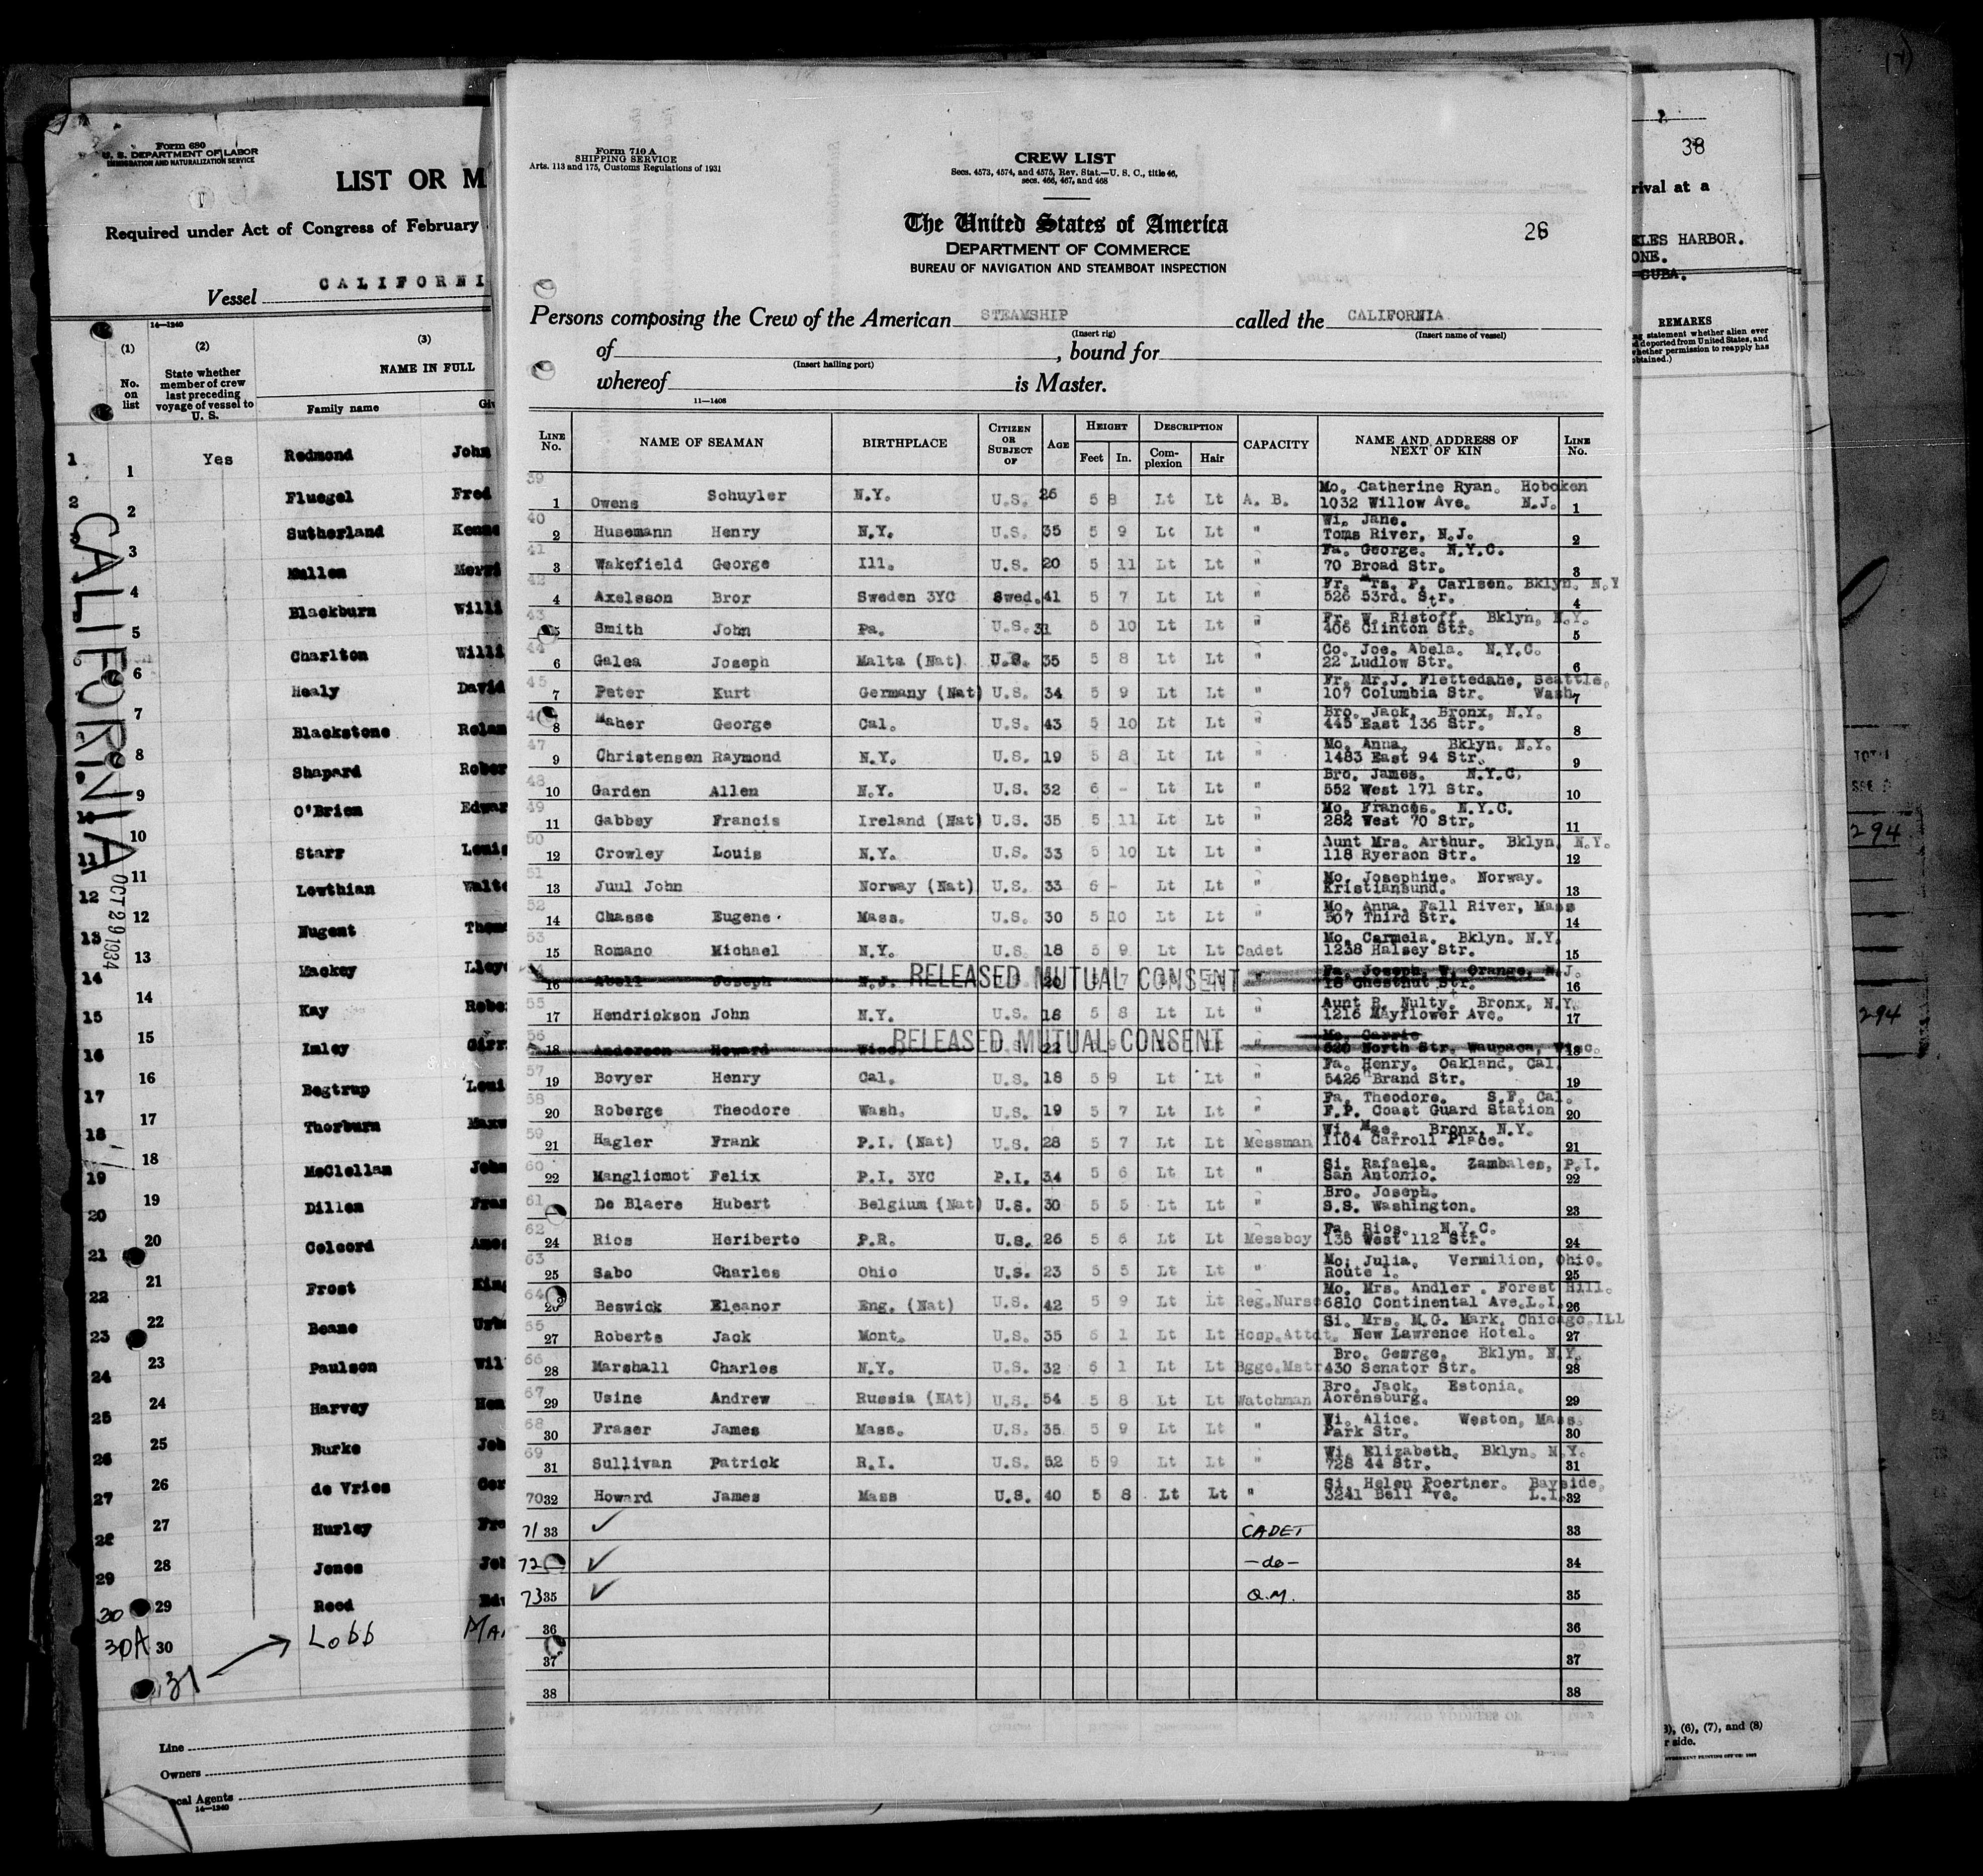 Form 680
U. S. DEPARTMENT OF LABOR
IMMIGRATION AND NATURALIZATION SERVICE
LIST OR M
Required under Act of Congress of February
Vessel CALIFORNI
14—1240
(1) (2) (3)
No. on list
State whether member of crew last preceding voyage of vessel to U. S.
NAME IN FULL
Family name
1 1 Yes Redmond John
2 2 Fluegel Fred
3 Sutherland Kenne
4 Mullen Merri
5 Blackburn Willi
6 Charlton Willi
7 Healy David
8 Blackstone Rolan
9 Shapard Rober
10 10 O'Brien Edwar
11 11 Starr Louis
12 12 Lowthian Walte
13 13 Nugent Thoma
14 14 Mackey Lloyd
15 15 Kay Rober
16 16 Imley
17 17 Begtrup Loui
18 18 Thorburn Maxw
19 19 McClellan John
20 20 Dillon Fran
21 21 Colcord Amos
22 22 Frost King
23 23 Beane
24 24 Paulson Wil
25 25 Harvey Hen
26 26 Burke Joh
27 27 de Vries Ger
28 28 Hurley Fre
29 29 Jones Joh
30 Reed Edw
30A 30 Lobb Mar
31
CALIFORNIA
OCT 29 1934
Line
Owners
ocal Agents
14—1240
Form 710 A
SHIPPING SERVICE
Arts. 113 and 175, Customs Regulations of 1931
CREW LIST
Secs. 4573, 4574, and 4575, Rev. Stat.—U. S. C., title 46,
secs. 466, 467, and 468
The United States of America
DEPARTMENT OF COMMERCE
BUREAU OF NAVIGATION AND STEAMBOAT INSPECTION
26
Persons composing the Crew of the American STEAMSHIP called the CALIFORNIA
(Insert rig) (Insert name of vessel)
of , bound for
(Insert hailing port)
whereof is Master.
11—1408
LINE No. NAME OF SEAMAN BIRTHPLACE CITIZEN OR SUBJECT OF AGE HEIGHT Feet In. DESCRIPTION Complexion Hair CAPACITY NAME AND ADDRESS OF NEXT OF KIN LINE No.
39 Mo. Catherine Ryan. Hoboken
1 Owens Schuyler N.Y. U.S. 26 5 8 Lt Lt A. B. 1032 Willow Ave. N.J. 1
40 Wi. Jane.
2 Husemann Henry N.Y. U.S. 35 5 9 Lt Lt " Toms River, N.J. 2
41 Fa. George. N.Y.C.
3 Wakefield George Ill. U.S. 20 5 11 Lt Lt " 70 Broad Str. 3
42 Fr. Mrs. P. Carlsen. Bklyn. N.Y
4 Axelsson Bror Sweden 3YC Swed. 41 5 7 Lt Lt " 526 53rd. Str. 4
43 Fr. W. Ristoff. Bklyn, N.Y.
5 Smith John Pa. U.S. 31 5 10 Lt Lt " 406 Clinton Str. 5
44 Co. Joe. Abela. N.Y.C.
6 Galea Joseph Malta (Nat) U.S. 35 5 8 Lt Lt " 22 Ludlow Str. 6
45 Fr. Mr.J. Flettedahe, Seattle,
7 Peter Kurt Germany (Nat) U.S. 34 5 9 Lt Lt " 107 Columbia Str. Wash 7
46 Bro. Jack, Bronx, N.Y.
8 Maher George Cal. U.S. 43 5 10 Lt Lt " 445 East 136 Str. 8
47 Mo. Anna, Bklyn. N.Y.
9 Christensen Raymond N.Y. U.S. 19 5 8 Lt Lt " 1483 East 94 Str. 9
48 Bro. James. N.Y.C.
10 Garden Allen N.Y. U.S. 32 6 - Lt Lt " 552 West 171 Str. 10
49 Mo. Frances. N.Y.C.
11 Gabbey Francis Ireland (Nat) U.S. 35 5 11 Lt Lt " 282 West 70 Str. 11
50 Aunt Mrs. Arthur. Bklyn, N.Y.
12 Crowley Louis N.Y. U.S. 33 5 10 Lt Lt " 118 Ryerson Str. 12
51 Mo. Josephine. Norway.
13 Juul John Norway (Nat) U.S. 33 6 - Lt Lt " Kristiansund. 13
52 Mo. Anna, Fall River, Mass
14 Chasse Eugene Mass. U.S. 30 5 10 Lt Lt " 507 Third Str. 14
53 Mo. Carmela. Bklyn. N.Y.
15 Romano Michael N.Y. U.S. 18 5 9 Lt Lt Cadet 1238 Halsey Str. 15
Fa. Joseph, W. Orange, N.J.
16 Abell Joseph N.J. RELEASED MUTUAL CONSENT 20 7 " 18 Chestnut Str. 16
55 Aunt R. Nulty. Bronx, N.Y.
17 Hendrickson John N.Y. U.S. 18 5 8 Lt Lt " 1216 Mayflower Ave. 17
56 Mo. Carrie
18 Anderson Howard Wisc. RELEASED MUTUAL CONSENT 22 9 " 520 North Str. Waupaca, Wisc. 18
57 Fa. Henry. Oakland, Cal.
19 Bovyer Henry Cal. U.S. 18 5 9 Lt Lt " 5426 Brand Str. 19
58 Fa. Theodore. S.F. Cal.
20 Roberge Theodore Wash. U.S. 19 5 7 Lt Lt " F.P. Coast Guard Station 20
59 Wi. Mae. Bronx, N.Y.
21 Hagler Frank P.I. (Nat) U.S. 28 5 7 Lt Lt Messman 1104 Carroll Place. 21
60 Si. Rafaela. Zambales, P.I.
22 Manglicmot Felix P.I. 3YC P.I. 34 5 6 Lt Lt " San Antonio. 22
61 Bro. Joseph.
De Blaere Hubert Belgium (Nat) U.S. 30 5 5 Lt Lt " S.S. Washington. 23
62 Fa. Rios. N.Y.C.
24 Rios Heriberto P.R. U.S. 26 5 6 Lt Lt Messboy 135 West 112 Str. 24
63 Mo. Julia, Vermilion, Ohio.
25 Sabo Charles Ohio U.S. 23 5 5 Lt Lt " Route 1. 25
64 Mo. Mrs. Andler . Forest Hill.
26 Beswick Eleanor Eng. (Nat) U.S. 42 5 9 Lt Lt Reg.Nurse 6810 Continental Ave.L.I. 26
65 Si. Mrs. M.G. Mark, Chicago ILL
27 Roberts Jack Mont. U.S. 35 6 1 Lt Lt Hosp.Attdt. New Lawrence Hotel. 27
66 Bro. George, Bklyn. N.Y.
28 Marshall Charles N.Y. U.S. 32 6 1 Lt Lt Bgge.Mstr 430 Senator Str. 28
67 Bro. Jack, Estonia.
29 Usine Andrew Russia (NAt) U.S. 54 5 8 Lt Lt Watchman Aorensburg. 29
68 Wi. Alice. Weston, Mass
30 Fraser James Mass. U.S. 35 5 9 Lt Lt " Park Str. 30
69 Wi. Elizabeth, Bklyn. N.Y.
31 Sullivan Patrick R.I. U.S. 52 5 9 Lt Lt " 728 44 Str. 31
Si. Helen Poertner. Bayside,
70 32 Howard James Mass U.S. 40 5 8 Lt Lt " 3241 Bell Ave. L.I. 32
71 33 ✓ CADET 33
72 ✓ —do— 34
73 35 ✓ Q.M. 35
36 36
37 37
38 38
38
rival at a
ELES HARBOR.
ONE.
CUBA.
REMARKS
ng statement whether alien ever
d deported from United States, and
whether permission to reapply has
obtained.)
294
294
), (6), (7), and (8)
r side.